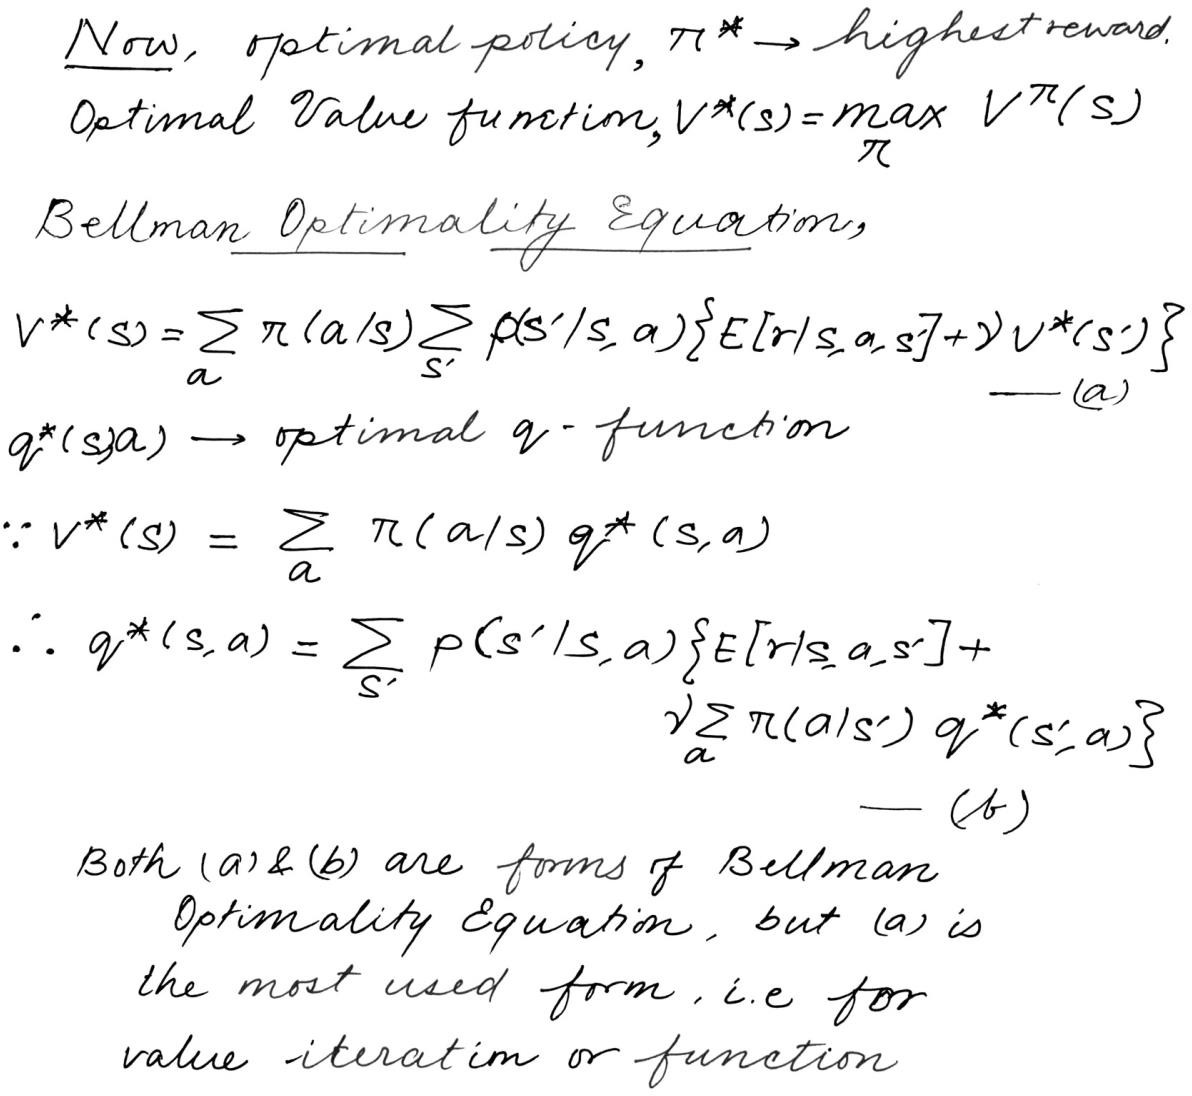 Now, optimal policy, π* → highest reward.
Optimal Value function, V*(s) = max_π V^π(s)
Bellman Optimality Equation,
V*(s) = Σ_a π(a/s) Σ_s' p(s'/s, a){E[r/s, a, s'] + γ V*(s')}
— (a)
q*(s,a) → optimal q - function
∵ V*(s) = Σ_a π(a/s) q*(s, a)
∴ q*(s, a) = Σ_s' p(s'/s, a){E[r/s, a, s'] +
γ Σ_a π(a/s') q*(s', a)}
— (b)
Both (a) & (b) are forms of Bellman
Optimality Equation, but (a) is
the most used form, i.e for
value iteration or function